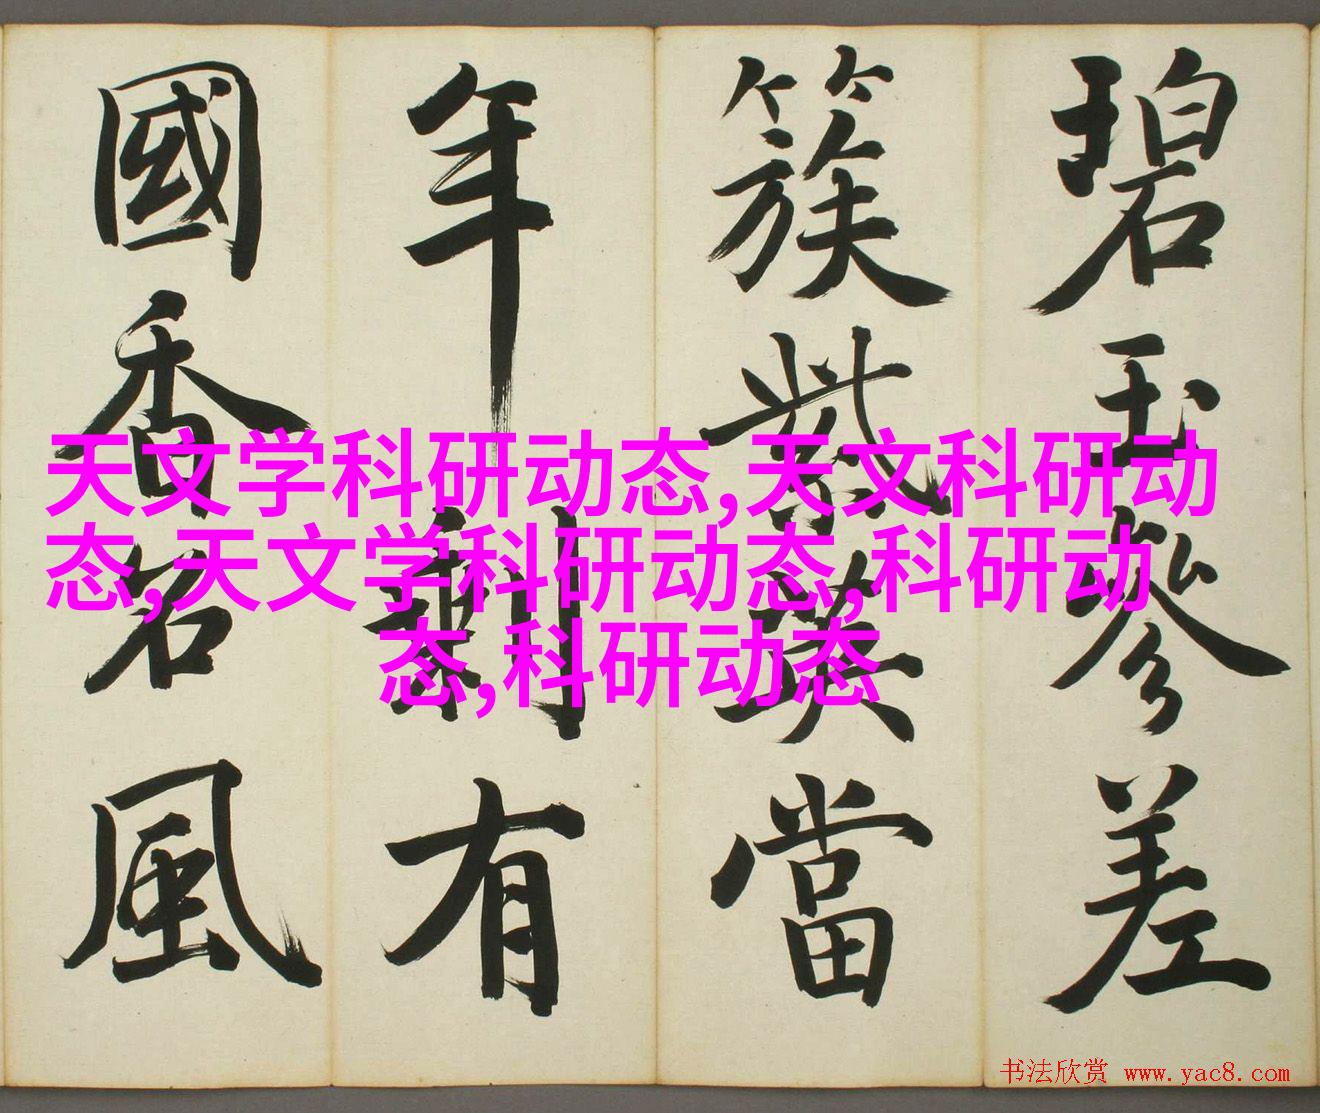 碧玉參差
簇紫英當
年剩有
國香名風
天文学科研动态,天文科研动
态,天文学科研动态,科研动
态,科研动态
书法欣赏 www.yac8.com